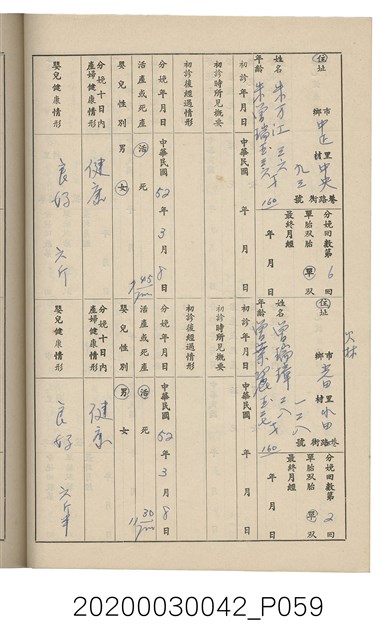 住址
鄉市 中正
村里 中央
號街路巷 九三
姓名 朱万江 三六
年齡
160
分娩回數第 6 回
單胎双胎 單 双
最終月經 年 月 日
初診年月日 中華民國 年 月 日
初診時所見概要
初診後經過情形
分娩年月日 中華民國 52 年 3 月 8 日
活產或死產 活 死
嬰兒性別 男 女
分娩十日內產婦健康情形 健康
嬰兒健康情形 良好 六斤
火林
住址
鄉市 光田
村里
號街路巷 一二八
姓名 曾瑞瑋 二八
年齡
160
分娩回數第 2 回
單胎双胎 單 双
最終月經 年 月 日
初診年月日 中華民國 年 月 日
初診時所見概要
初診後經過情形
分娩年月日 中華民國 52 年 3 月 8 日
活產或死產 活 死
嬰兒性別 男 女
分娩十日內產婦健康情形 健康
嬰兒健康情形 良好
20200030042_P059